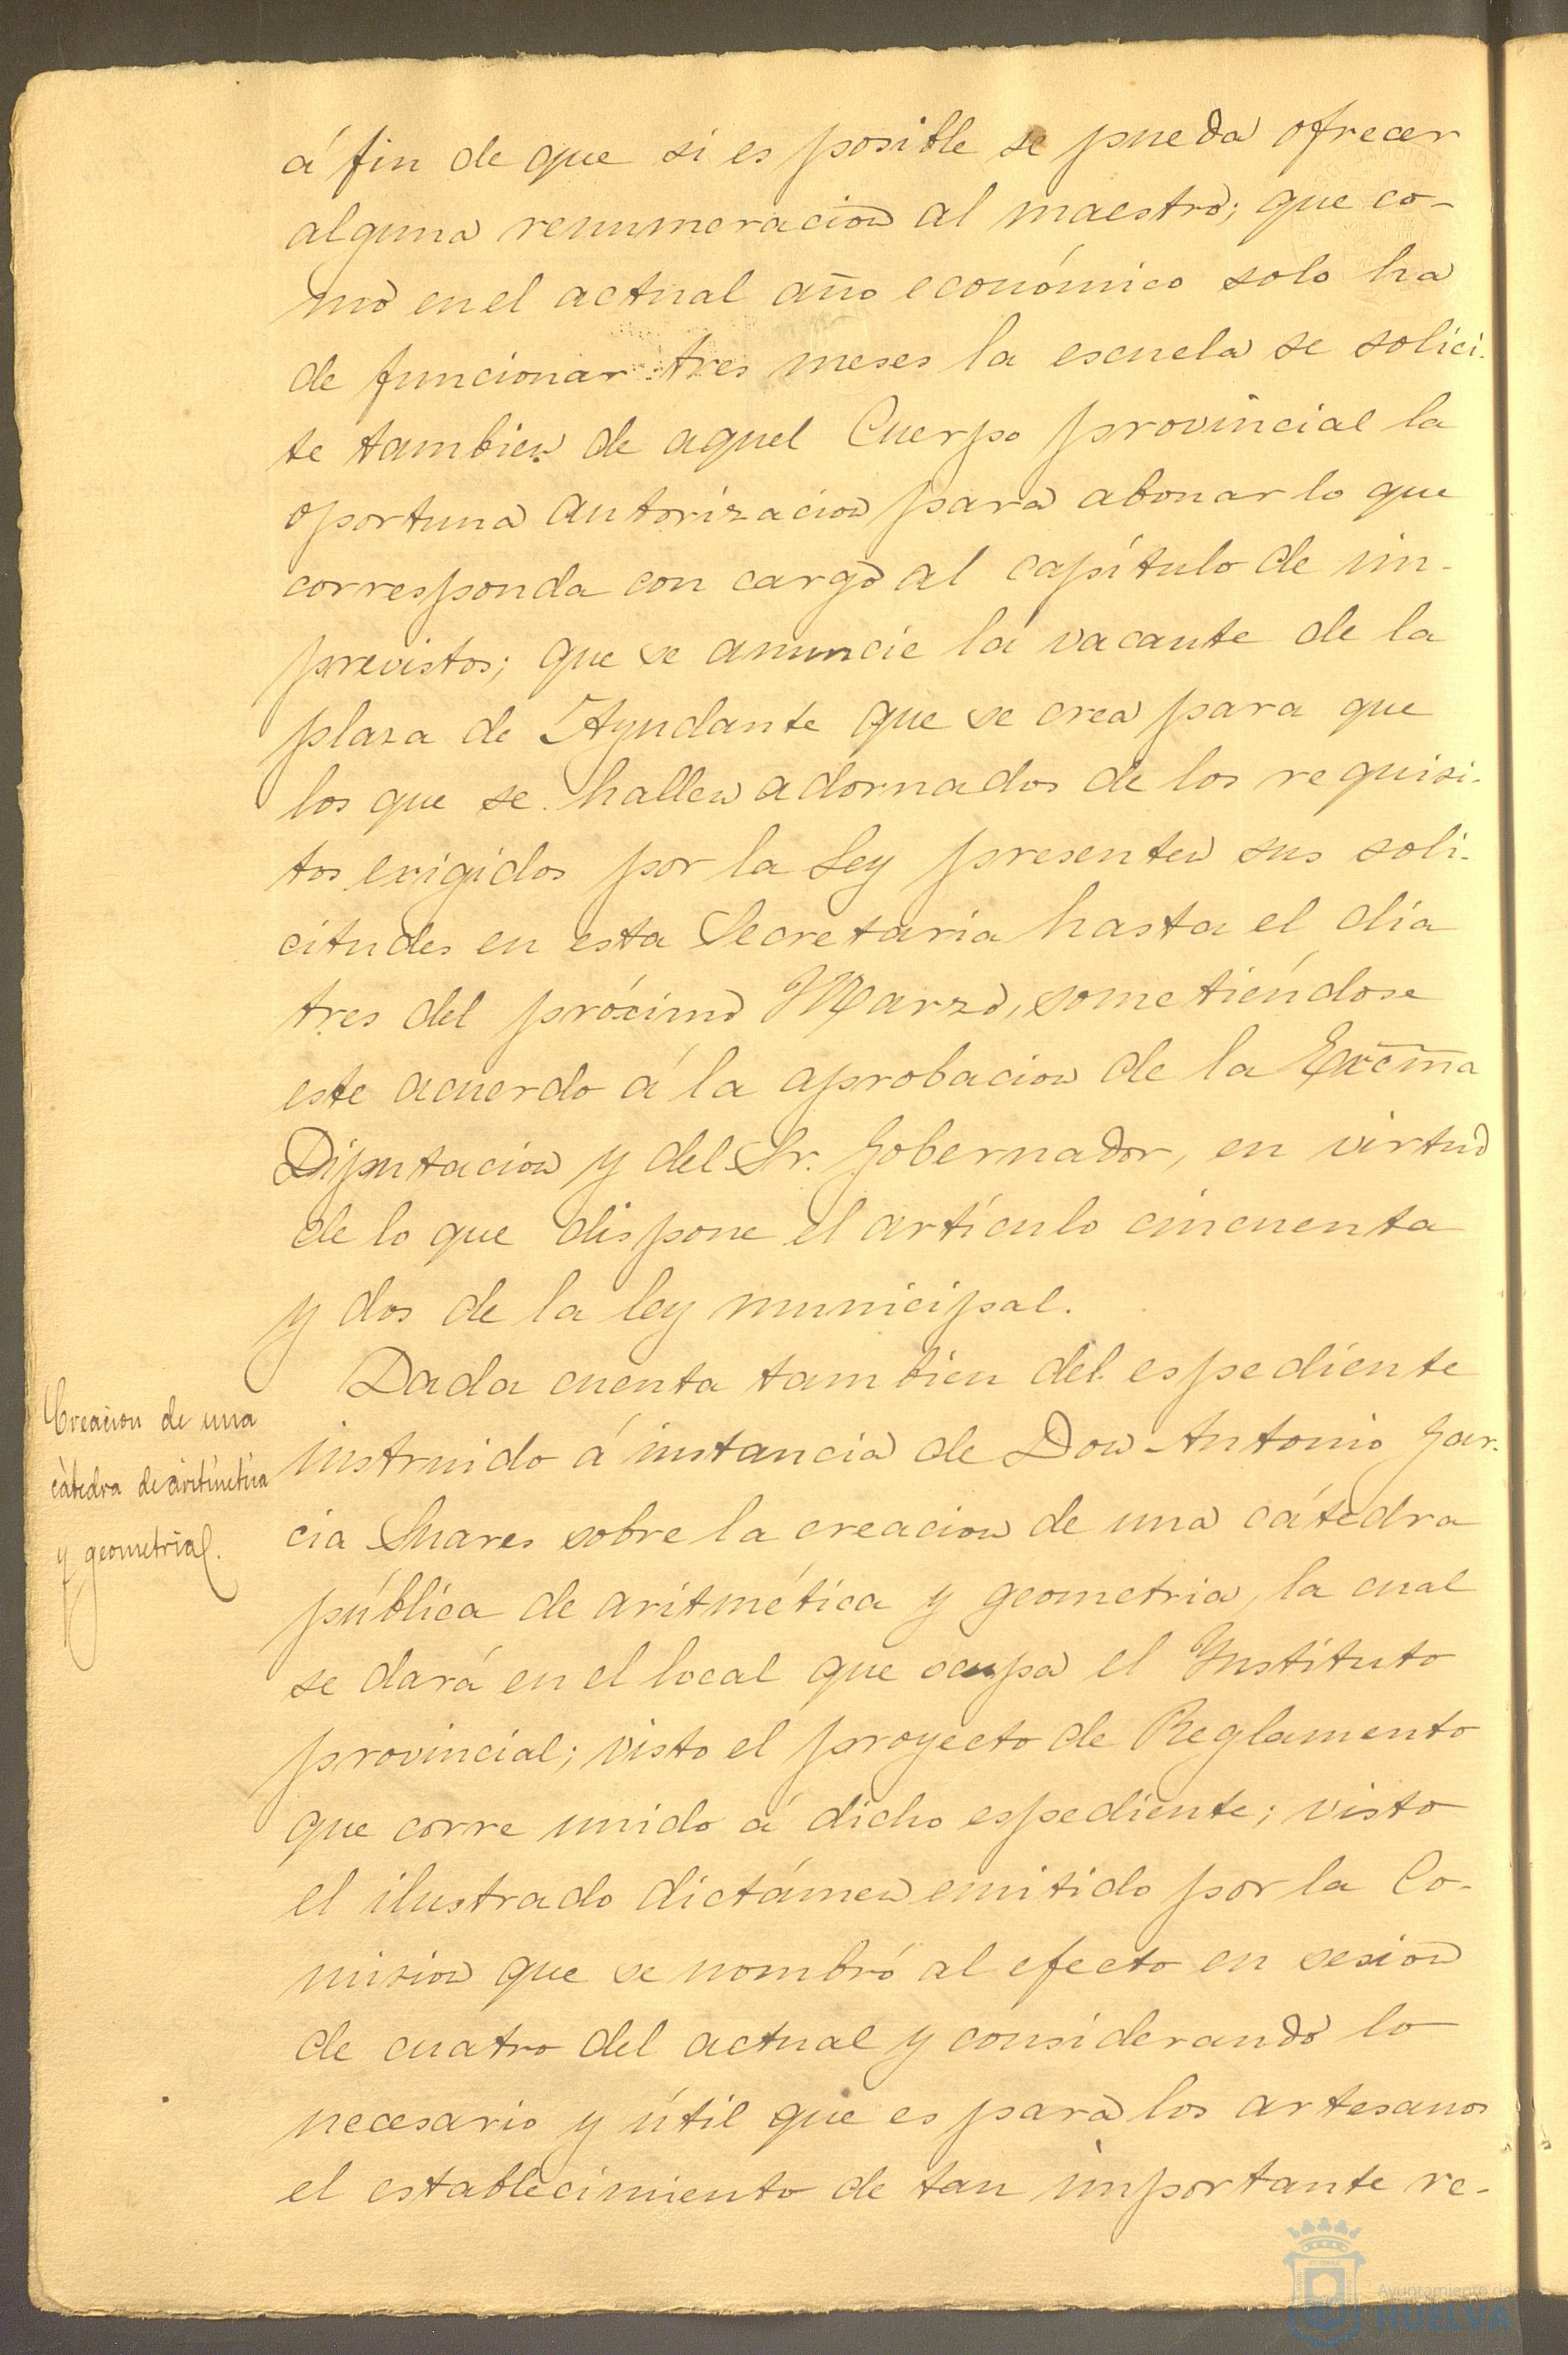 á fin de que si es posible se pueda ofrecer
alguna renumeracion al maestro; que co-
mo en el actual año económico solo ha
de funcionar tres meses la escuela se solici-
te tambien de aquel Cuerpo provincial la
oportuna autorizacion para abonar lo que
corresponda con cargo al capítulo de im-
previstos; que se anuncie la vacante de la
plaza de Ayudante que se crea para que
los que se hallen adornados de los requisi-
tos exigidos por la Ley presenten sus soli-
citudes en esta Secretaria hasta el dia
tres del próximo Marzo, sometiéndose
este acuerdo á la aprobacion de la Excma
Diputacion y del Sr. Gobernador, en virtud
de lo que dispone el artículo cincuenta
y dos de la ley municipal.
Creacion de una
cátedra de aritmetica
y geometria.
Dada cuenta tambien del espediente
instruido á instancia de Don Antonio Gar-
cia Suares sobre la creacion de una cátedra
pública de aritmética y geometria, la cual
se dará en el local que ocupa el Instituto
provincial; visto el proyecto de Reglamento
que corre unido á dicho espediente; visto
el ilustrado dictámen emitido por la Co-
mision que se nombró al efecto en sesion
de cuatro del actual y considerando lo
necesario y útil que es para los artesanos
el establecimiento de tan importante re-
Ayuntamiento de
HUELVA